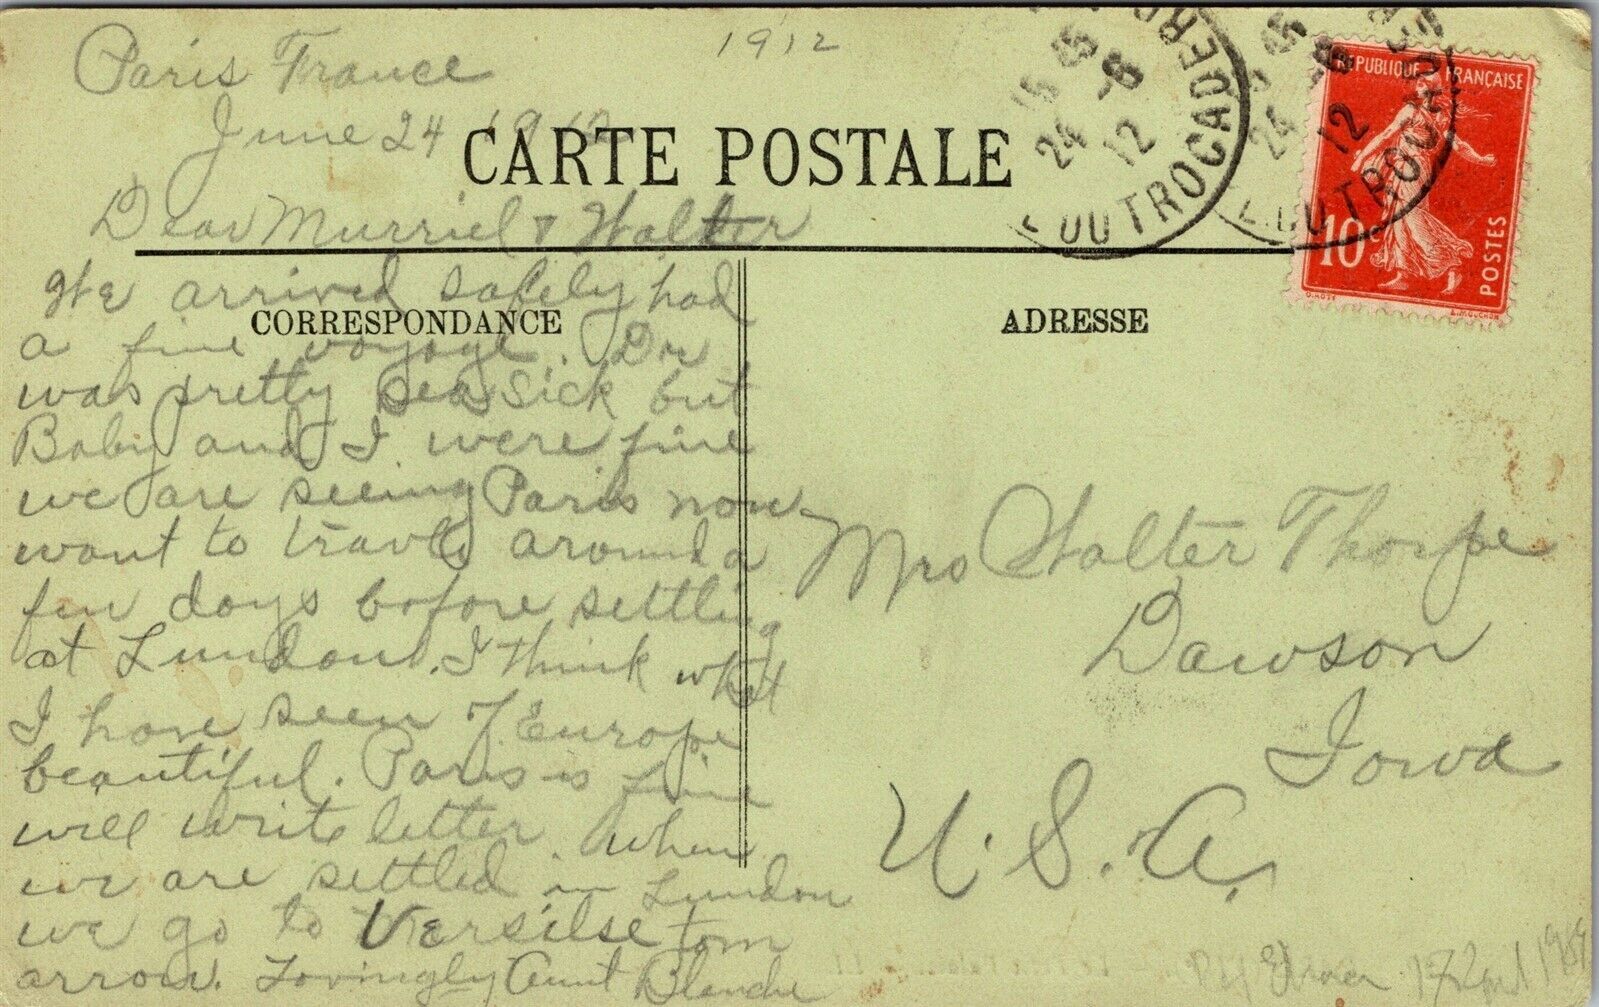 1912
Paris France
June 24 1912
CARTE POSTALE
Dear Murriel & Walter
We arrived safely had
CORRESPONDANCE
a fine voyage. Dr
was pretty sea sick but
Baby and I were fine
we are seeing Paris now
want to travle around a
few days before settling
at Lundon. I think what
I have seen of Europe
beautiful. Paris is fine
will write letter when
we are settled in Lundon
we go to Versilse tom
arrow. Lovingly Aunt Blanche
15 45
24 -6
12
DU TROCADERO
15 45
24 -6
12
DU TROCADERO
REPUBLIQUE FRANÇAISE
10c
POSTES
O. ROTY
L. MOUCHON
ADRESSE
Mrs Walter Thorpe
Dawson
Iowa
U.S.A.